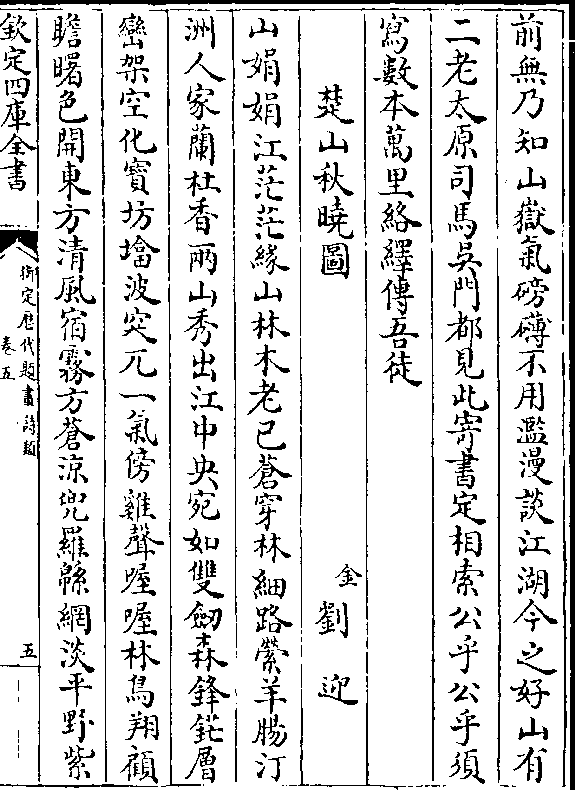 前無乃知山嶽氣磅礴不用濫漫談江湖今之好山有
二老太原司馬吳門都見此寄書定相索公乎公乎須
寫數本萬里絡繹傳吾徒
楚山秋曉圖
金 劉迎
山娟娟江茫茫緣山林木老已蒼穿林細路縈羊腸汀
洲人家蘭杜香兩山秀出江中央宛如雙劒森鋒鋩層
巒架空化寳坊墖波突兀一氣傍雞聲喔喔林鳥翔顧
瞻曙色開東方清風宿霧方蒼涼兜羅緜網淡平野紫
欽定四庫全書
御定歷代題畫詩類
卷五
五